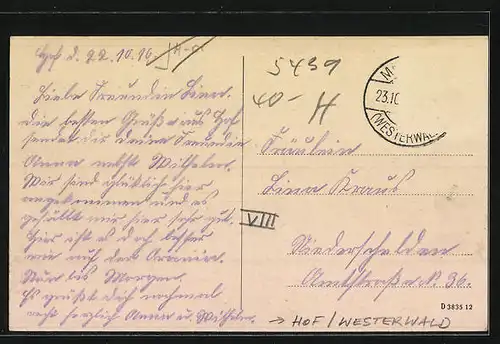 Hof d. 22.10.16
Liebe Freundin Lina.
Die besten Grüße aus Hof
sendet dir deine Freundin
Anna nebst Wilhelm.
Wir sind glücklich hier
angekommen und es
gefällt mir hier sehr gut.
Hier ist es doch besser
wie auf der
Nun bis Morgen.
Es grüßt dich nochmal
recht herzlich Anna u. Wilhelm.
5439
40- H
VIII
M
23.10
(WESTERWALD
Fräulein
Lina Kraus
Niederschelden
Amtstraße No 36.
D 3835 12
→ HOF / WESTERWALD